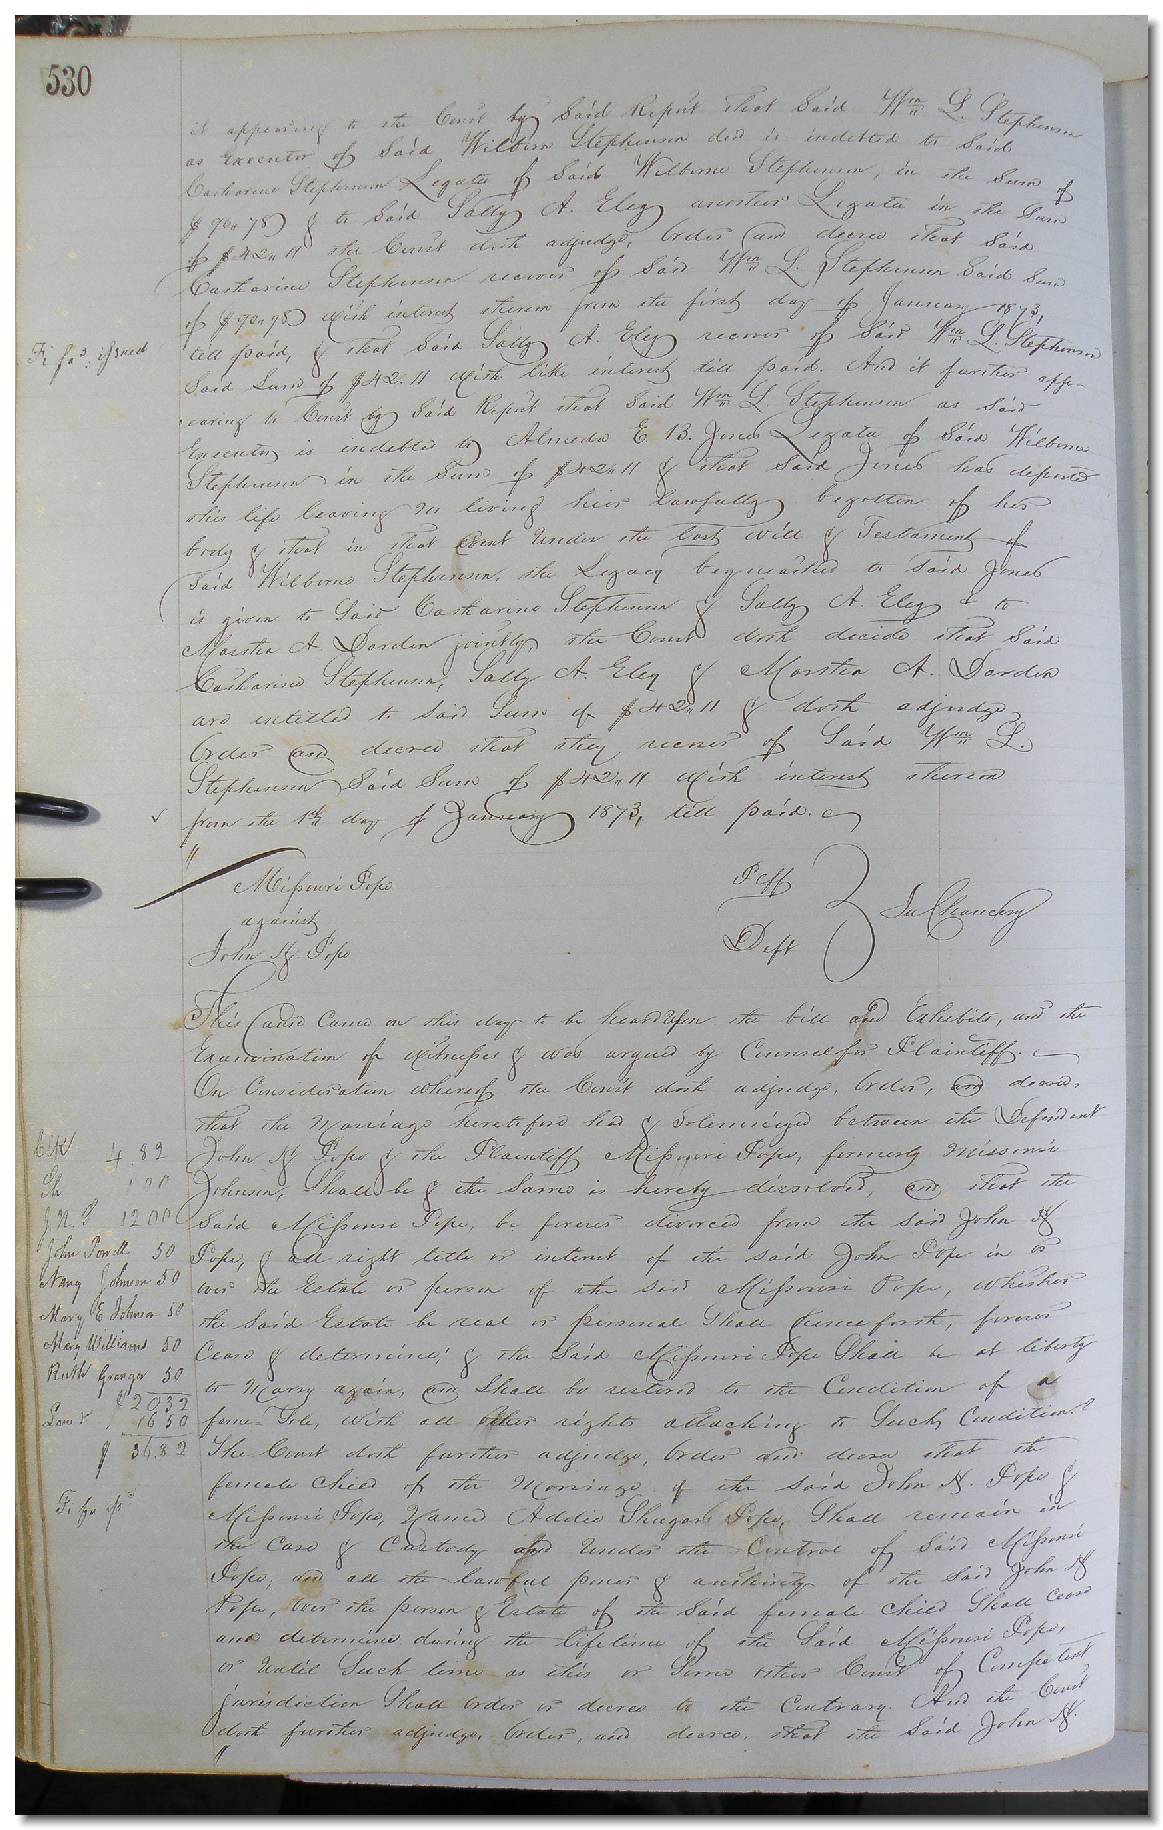 530
it appearing to the Court by Said Report that Said Wm L. Stephenson
as Executor of Said Wilborn Stephenson decd is indebted to Said
Catharine Stephenson Legatee of Said Wilborne Stephenson, in the Sum of
$90.78 & to Said Sally A. Eley another Legatee in the Sum
of $42.11 the Court doth adjudge, Order and decree that Said
Catharine Stephenson recover of Said Wm L. Stephenson Said Sum
of $90.78 with interest thereon from the first day of January 1873,
Fi fas. issued
till paid, & that Said Sally A. Eley recover of Said Wm L. Stephenson
Said Sum of $42.11 with like interest till paid. And it further appe-
earing to Court by Said Report that Said Wm L Stephenson as Said
Executor is indebted to Almeda E. B. Jones Legatee of Said Wilborne
Stephenson in the Sum of $42.11 & that Said Jones has departed
this life leaving no living heir lawfully begotten of her
body & that in that event Under the last will & Testament of
Said Wilborne Stephenson, the Legacy bequeathed to Said Jones
is given to Said Catharine Stephenson & Sally A. Eley & to
A Darden jointly, the Court doth decide that Said
Catharine Stephenson, Sally A. Eley & A. Darden
are entitled to Said Sum of $42.11 & doth adjudge
Order and decree that they, recover of Said Wm L.
Stephenson Said Sum of $42.11 with interest thereon
from the 1st day of January 1873, till paid.
Missouri Pope Plff
against In Chancery
John N Pope Deft
This Cause Came on this day to be heard Upon the bill and Exhibits, and the
Examination of Witnesses & was argued by Counsel for Plaintiff.
On Consideration whereof the Court doth adjudge, Order, and decree,
that the Marriage heretofore had & Solemnized between the Defendant
4.82
John N Pope & the Plaintiff Missouri Pope, formerly Missouri
Sh
Johnson, Shall be & the Same is hereby dissolved, and that the
J.N.P 12 00
Said Missouri Pope, be forever divorced from the Said John N
John Powell 50
Pope, & all right title or interest of the said John Pope in or
Nancy Johnson 50
over the Estate or person of the said Missouri Pope, whether
Mary E Johnson 50
the Said Estate be real or personal Shall henceforth, forever
Mary Williams 50
Cease & determine; & the Said Missouri Pope Shall be at liberty
Ruth Granger 50
to Marry again, and Shall be restored to the Condition of a
$20 32
feme Sole, with all other rights attaching to Such Condition.
16 50
$ 36.82
The Court doth further adjudge, Order and decree that the
female child of the Marriage of the said John N. Pope &
Missouri Pope, Named Addie Pope, Shall remain in
the Care & Custody and Under the Control of Said Missouri
Pope, and all the lawful power & authority of the Said John N
Pope, over the person & Estate of the Said female child Shall Cease
and determine during the lifetime of the Said Missouri Pope,
or Until Such time as this or Some other Court of Competent
jurisdiction Shall Order or decree to the Contrary. And the Court
doth further adjudge, Order, and decree, that the Said John N.